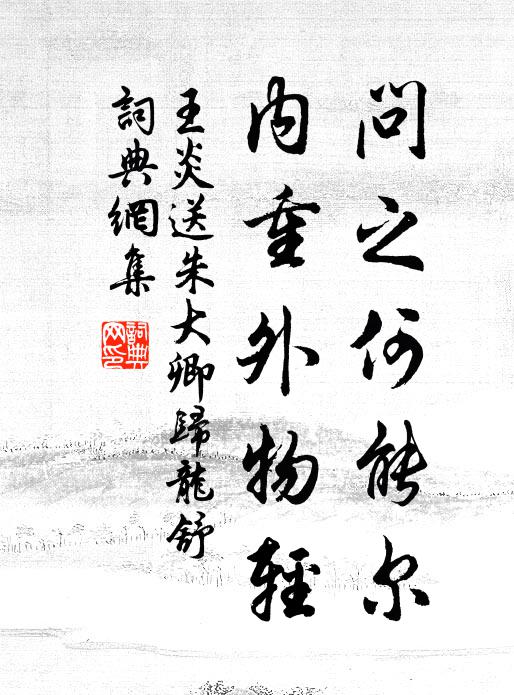 問之何能尔
内重外物輕
王炎送朱大卿歸龍舒
詞典網集
詞典
网印